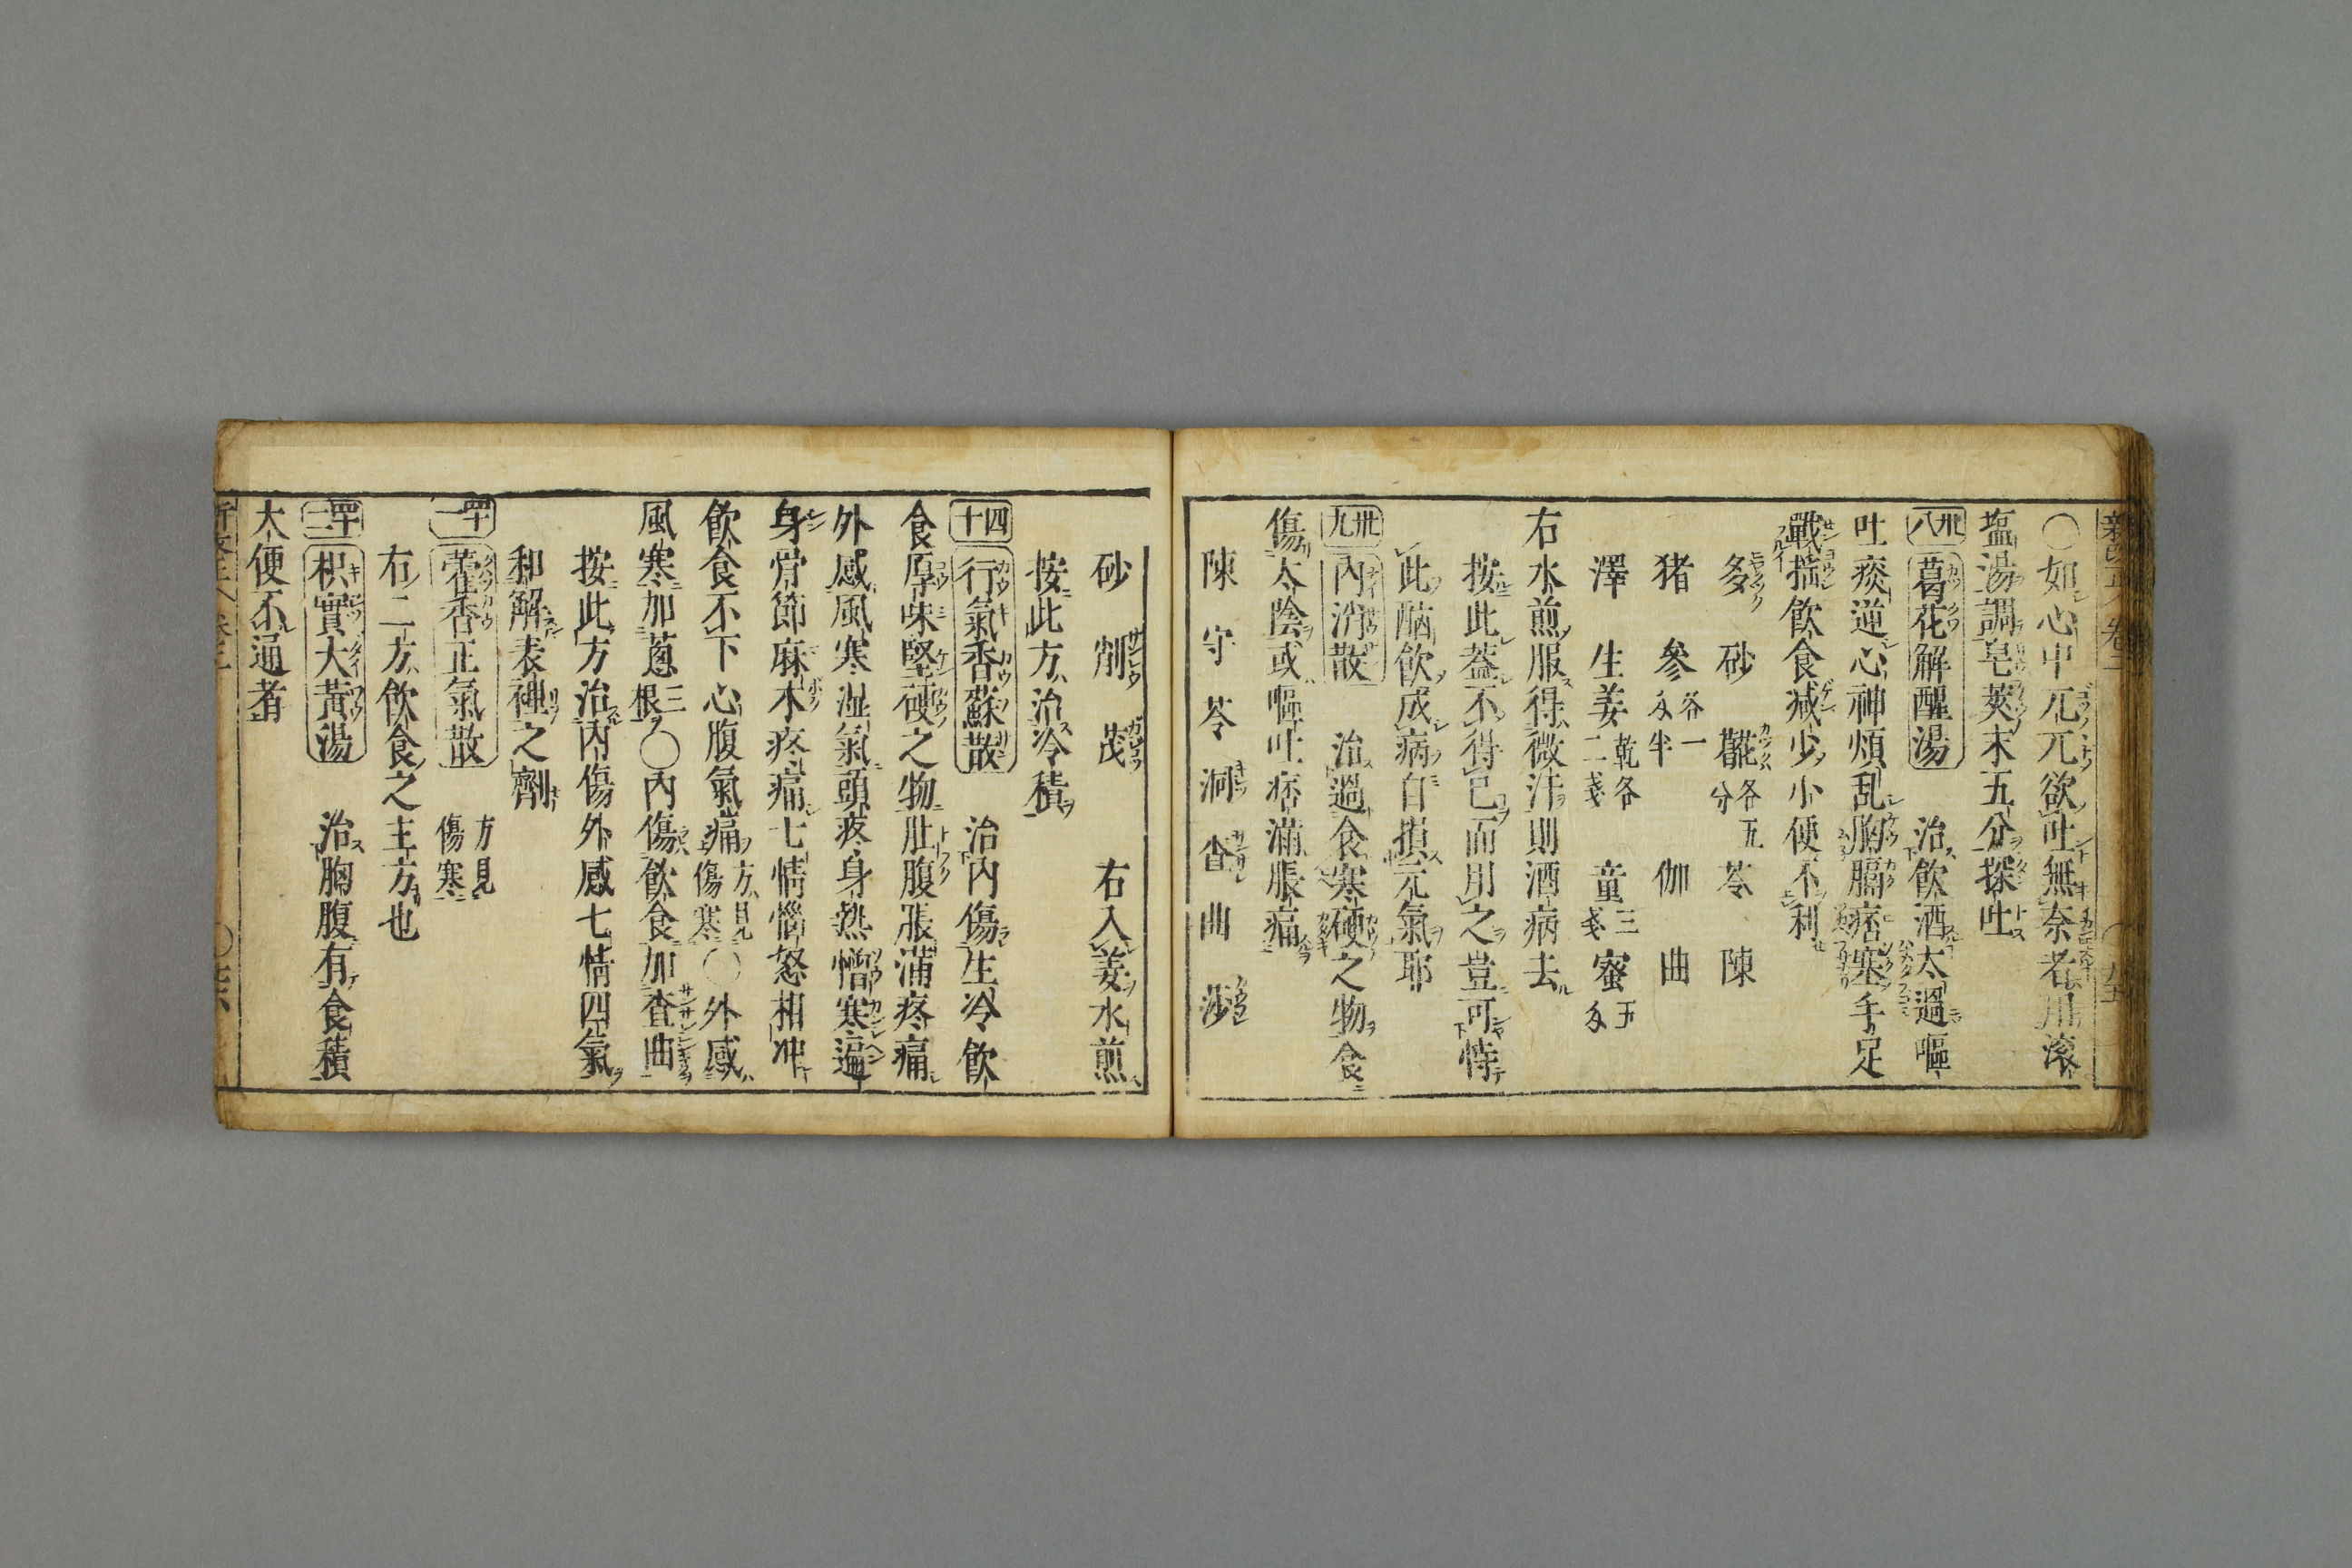 ○如心中兀兀欲吐無奈者用滾
塩湯調皂莢末五分探吐
卅八 葛花解醒湯 治飲酒太過嘔
吐痰逆心神煩乱胸膈痞塞手足
戰揺飲食减少小便不利
砂 各五分 苓 陳
猪 參各一 半 伽 曲
澤 生姜 乾各二 童三 蜜五
右水煎服得微汗則酒病去
按此葢不得已而用之豈可恃
此酗飲成病自損元氣耶
卅九 內消散 治過食寒硬之物食
傷太陰或嘔吐痞滿脹痛
陳 守 苓 査 曲
砂 茂 右入姜水煎
按此方治冷積
四十 行氣香蘇散 治內傷生冷飲
食厚味堅硬之物肚腹脹滿疼痛
外感風寒湿氣頭疼身热憎寒遍
身骨節麻木疼痛七情惱怒相冲
飲食不下心腹氣痛方見傷寒○外感
風寒加葱三根○內傷飲食加査曲
按此方治內傷外感七情四氣
和解表裡之劑
四十一 藿香正氣散 方見傷寒
右二方飲食之主方也
四十二 枳實大黃湯 治胸腹有食積
大便不通者